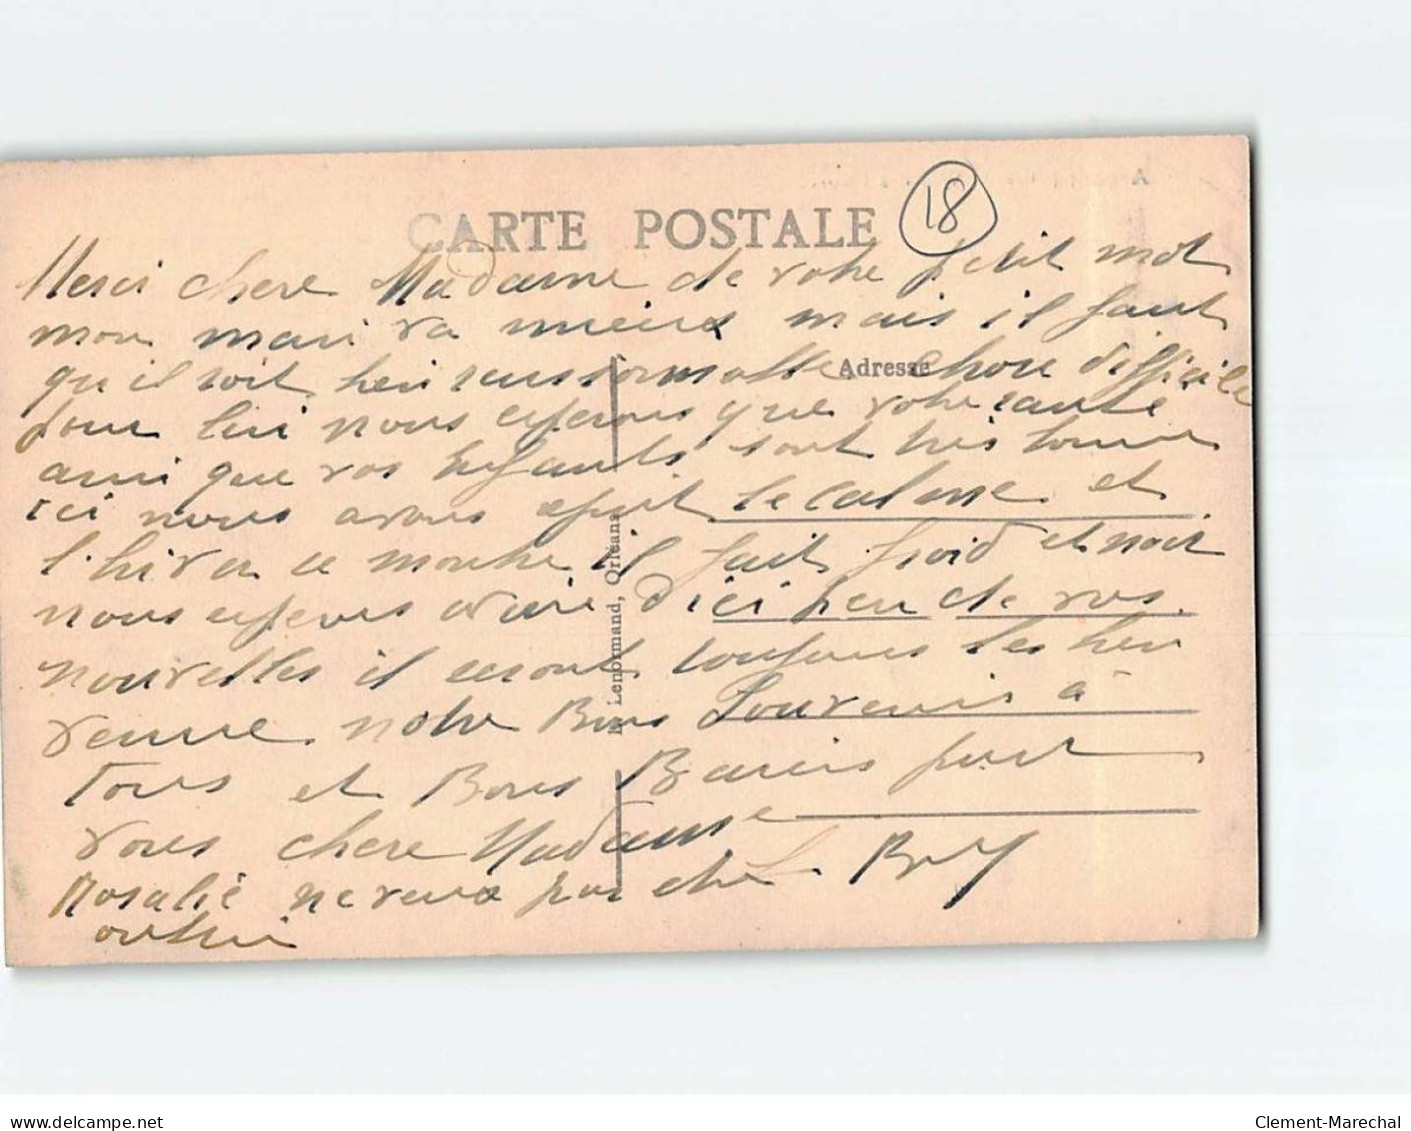 CARTE POSTALE
18
Merci chere Madame de votre petit mot
mon mari va mieux mais il faut
qu'il soit chose difficile
Adresse
pour lui nous esperons que votre santé
ainsi que vos enfants sont tres bonne
ici nous avons le calme et
l'hiver ce montre il fait froid et noir
nous esperons avoir d'ici peu de vos
nouvelles il seront toujours les bien
venue notre Bons Souvenir à
Tous et Bons Baisers pour
vous chere Madame
Rosalie
Lenormand, Orléans
delcampe.net
Clement-Marechal